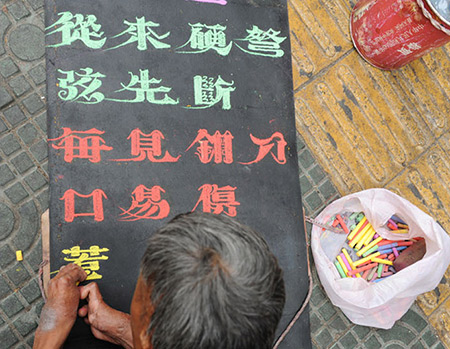 從來硬弩
弦先斷
每見鋼刀
口易傷
惹